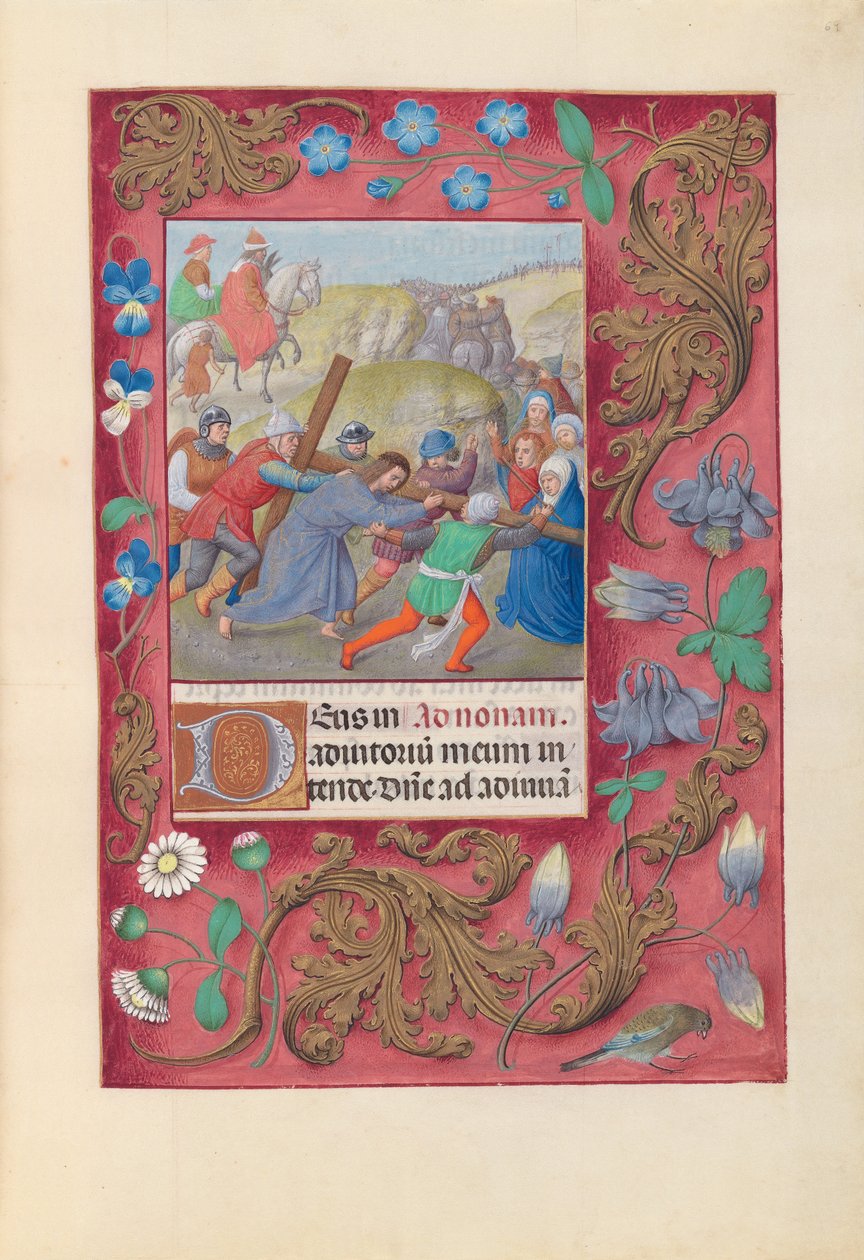 69
Deus in Ad nonam.
adiutoriū meum in/
tende. Dn̄e ad adiuuā